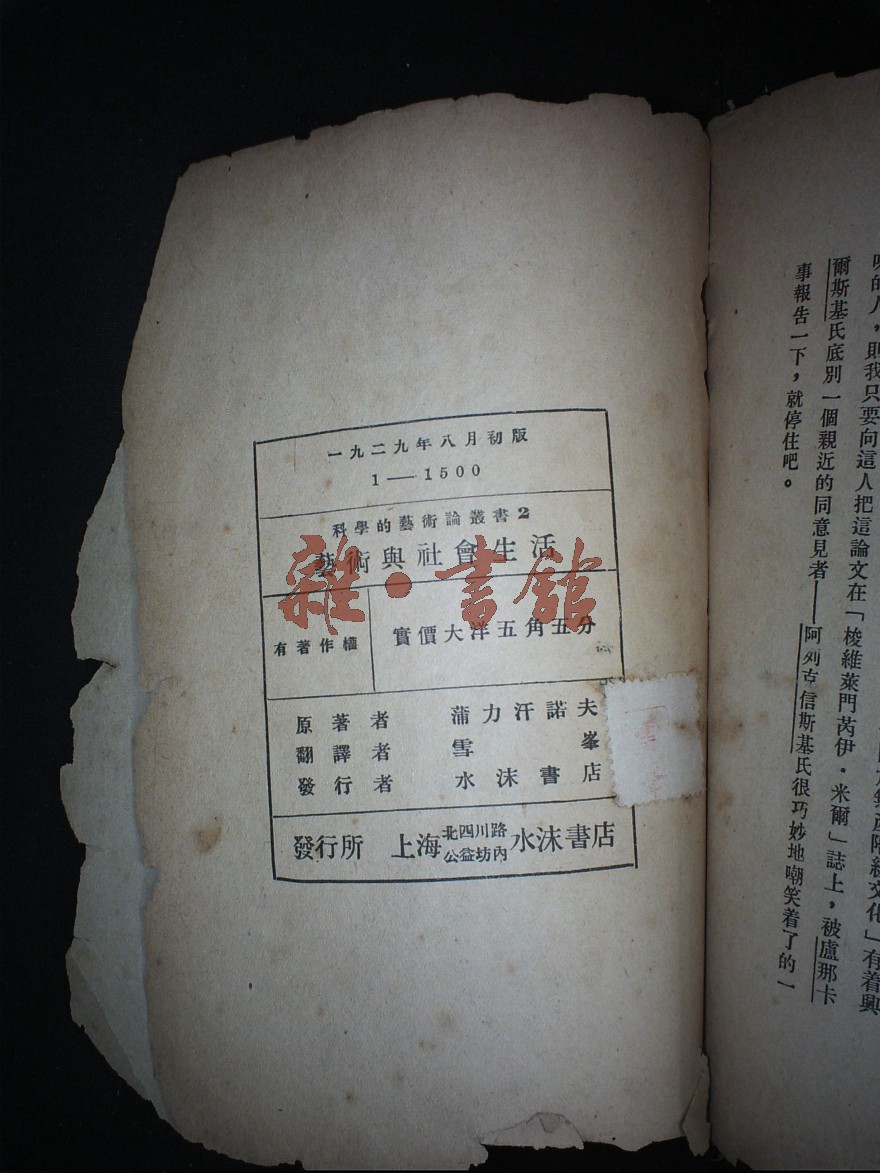 一九二九年八月初版
1——1500
科學的藝術論叢書2
藝術與社會生活
有著作權
實價大洋五角五分
原著者 蒲力汗諾夫
翻譯者 雪峯
發行者 水沫書店
發行所 上海北四川路公益坊內水沫書店
雜·書館
的人，則我只要向這人把這論文在「梭維萊門芮伊·米爾」誌上，被盧那卡
爾斯基氏底別一個親近的同意見者——阿列古信斯基氏很巧妙地嘲笑着了的一
事報告一下，就停住吧。
產階級文化」有着興